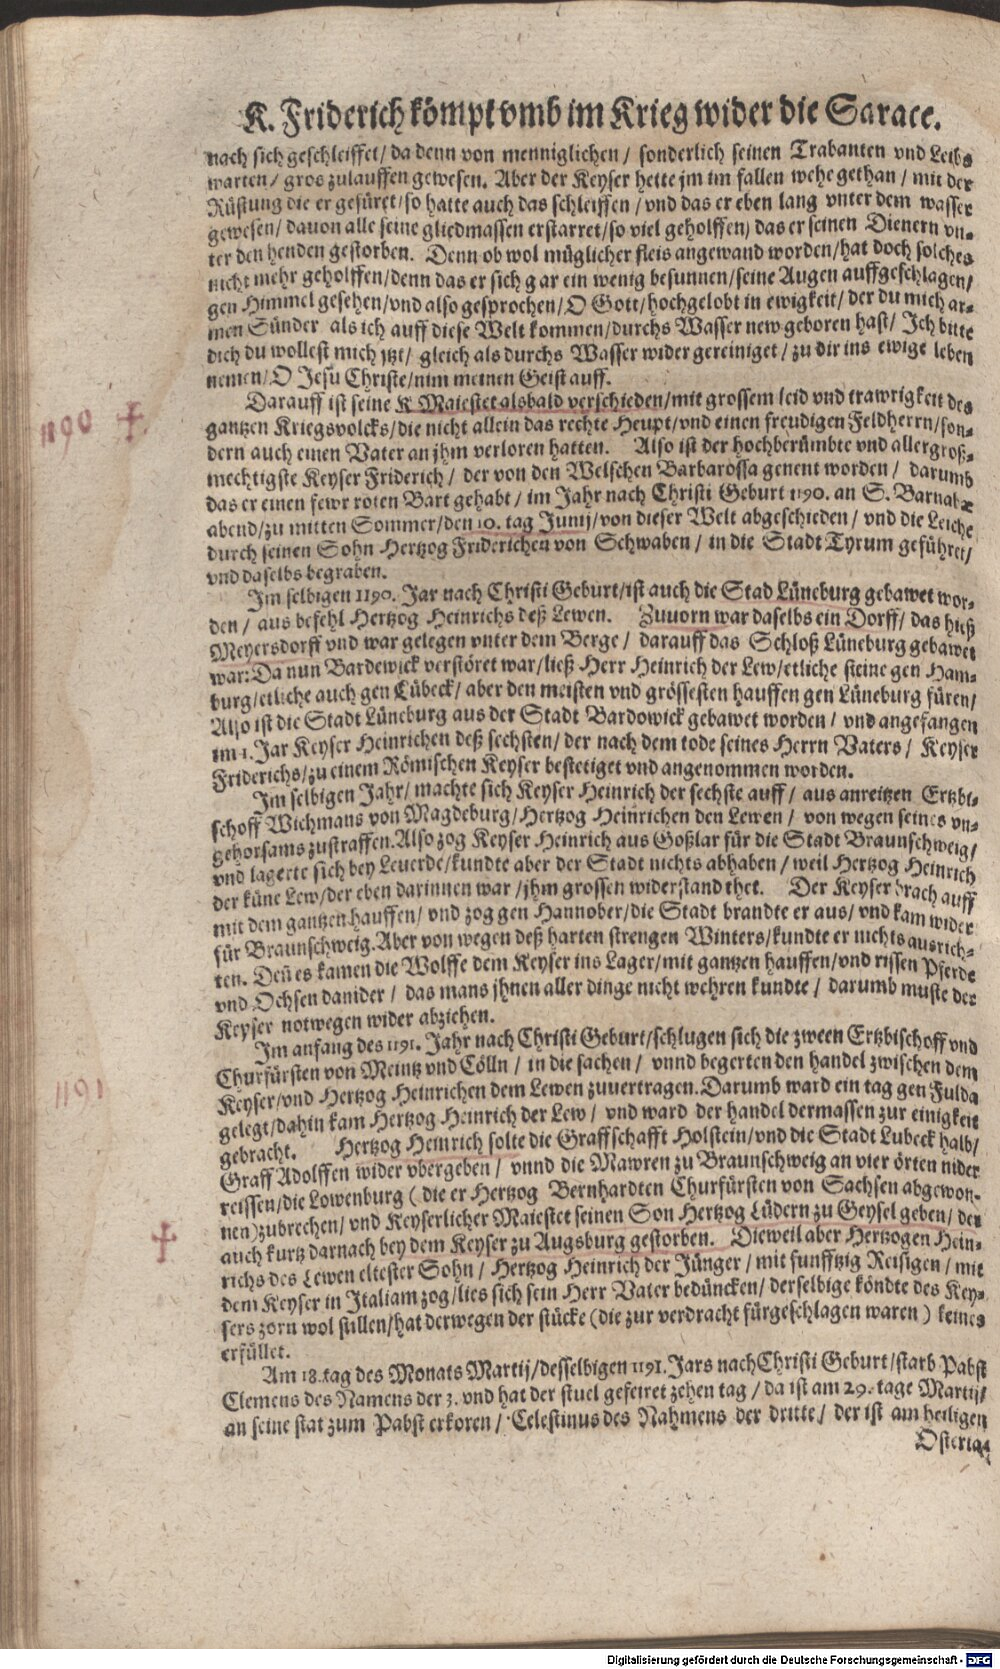 K. Friderich kömpt vmb im Krieg wider die Sarace.
nach sich geschleiffet/ da denn von menniglichen/ sonderlich seinen Trabanten vnd Leibs
warten/ gros zulauffen gewesen. Aber der Keyser hette jm im fallen wehe gethan/ mit der
Rüstung die er gefüret/ so hatte auch das schleiffen/ vnd das er eben lang vnter dem wasser
gewesen/ dauon alle seine gliedmassen erstarret/ so viel geholffen/ das er seinen Dienern vn-
ter den henden gestorben. Denn ob wol müglicher fleis angewand worden/ hat doch solches
nicht mehr geholffen/ denn das er sich gar ein wenig besunnen/ seine Augen auffgeschlagen/
gen Himmel gesehen/ vnd also gesprochen/ O Gott/ hochgelobt in ewigkeit/ der du mich ar-
men Sünder als ich auff diese Welt kommen/ durchs Wasser new geboren hast/ Ich bitte
dich du wollest mich jtzt/ gleich als durchs Wasser wider gereiniget/ zu dir ins ewige leben
nemen/ O Jesu Christe/ nim meinen Geist auff.
Darauff ist seine K Maiestet alsbald verschieden/ mit grossem leid vnd trawrigkeit des
1190 gantzen Kriegsvolcks/ die nicht allein das rechte Heupt/ vnd einen freudigen Feldherrn/ son-
dern auch einen Vater an jhm verloren hatten. Also ist der hochberümbte vnd allergroß-
mechtigste Keyser Friderich/ der von den Welschen Barbarossa genent worden/ darumb
das er einen fewr roten Bart gehabt/ im Jahr nach Christi Geburt 1190. an S. Barnabæ
abend/ zu mitten Sommer/ den 10. tag Junij/ von dieser Welt abgeschieden/ vnd die Leiche
durch seinen Sohn Hertzog Friderichen von Schwaben/ in die Stadt Tyrum geführet/
vnd daselbs begraben.
Im selbigen 1190. Jar nach Christi Geburt/ ist auch die Stad Lüneburg gebawet wor-
den/ aus befehl Hertzog Heinrichs deß Lewen. Zuuorn war daselbs ein Dorff/ das hieß
Meyersdorff vnd war gelegen vnter dem Berge/ darauff das Schloß Lüneburg gebawet
war: Da nun Bardewick verstöret war/ ließ Herr Heinrich der Lew/ etliche steine gen Ham-
burg/ etliche auch gen Lübeck/ aber den meisten vnd grössesten hauffen gen Lüneburg füren/
Also ist die Stadt Lüneburg aus der Stadt Bardowick gebawet worden/ vnd angefangen
im 1. Jar Keyser Heinrichen deß sechsten/ der nach dem tode seines Herrn Vaters/ Keyser
Friderichs/ zu einem Römischen Keyser bestetiget vnd angenommen worden.
Im selbigen Jahr/ machte sich Keyser Heinrich der sechste auff/ aus anreitzen Ertzbi-
schoff Wichmans von Magdeburg/ Hertzog Heinrichen den Lewen/ von wegen seines vn-
gehorsams zustraffen. Also zog Keyser Heinrich aus Goßlar für die Stadt Braunschweig/
vnd lagerte sich bey Leuerde/ kundte aber der Stadt nichts abhaben/ weil Hertzog Heinrich
der küne Lew/ der eben darinnen war/ jhm grossen widerstand thet. Der Keyser brach auff
mit dem gantzen hauffen/ vnd zog gen Hannober/ die Stadt brandte er aus/ vnd kam wider
für Braunschweig. Aber von wegen deß harten strengen Winters/ kundte er nichts ausrich-
ten. Deñ es kamen die Wolffe dem Keyser ins Lager/ mit gantzen hauffen/ vnd rissen Pferde
vnd Ochsen danider/ das mans jhnen aller dinge nicht wehren kundte/ darumb muste der
Keyser notwegen wider abziehen.
Im anfang des 1191. Jahr nach Christi Geburt/ schlugen sich die zween Ertzbischoff vnd
1191 Churfürsten von Meintz vnd Cölln/ in die sachen/ vnnd begerten den handel zwischen dem
Keyser/ vnd Hertzog Heinrichen dem Lewen zuuertragen. Darumb ward ein tag gen Fulda
gelegt/ dahin kam Hertzog Heinrich der Lew/ vnd ward der handel dermassen zur einigkeit
gebracht. Hertzog Heinrich solte die Graffschafft Holstein/ vnd die Stadt Lubeck halb/
Graff Adolffen wider vbergeben/ vnnd die Mawren zu Braunschweig an vier örten nider
reissen/ die Lowenburg (die er Hertzog Bernhardten Churfürsten von Sachsen abgewon-
nen) zubrechen/ vnd Keyserlicher Maiestet seinen Son Hertzog Lüdern zu Geysel geben/ der
auch kurtz darnach bey dem Keyser zu Augsburg gestorben. Dieweil aber Hertzogen Hein-
richs des Lewen eltester Sohn/ Hertzog Heinrich der Jünger/ mit funfftzig Reisigen/ mit
dem Keyser in Italiam zog/ lies sich sein Herr Vater bedüncken/ derselbige köndte des Key-
sers zorn wol stillen/ hat derwegen der stücke (die zur verdracht fürgeschlagen waren) keines
erfüllet.
Am 18. tag des Monats Martij/ desselbigen 1191. Jars nach Christi Geburt/ starb Pabst
Clemens des Namens der 3. vnd hat der stuel gefeiret zehen tag/ da ist am 29. tage Martij/
an seine stat zum Pabst erkoren/ Celestinus des Nahmens der dritte/ der ist am heiligen
Ostertag
Digitalisierung gefördert durch die Deutsche Forschungsgemeinschaft - DFG